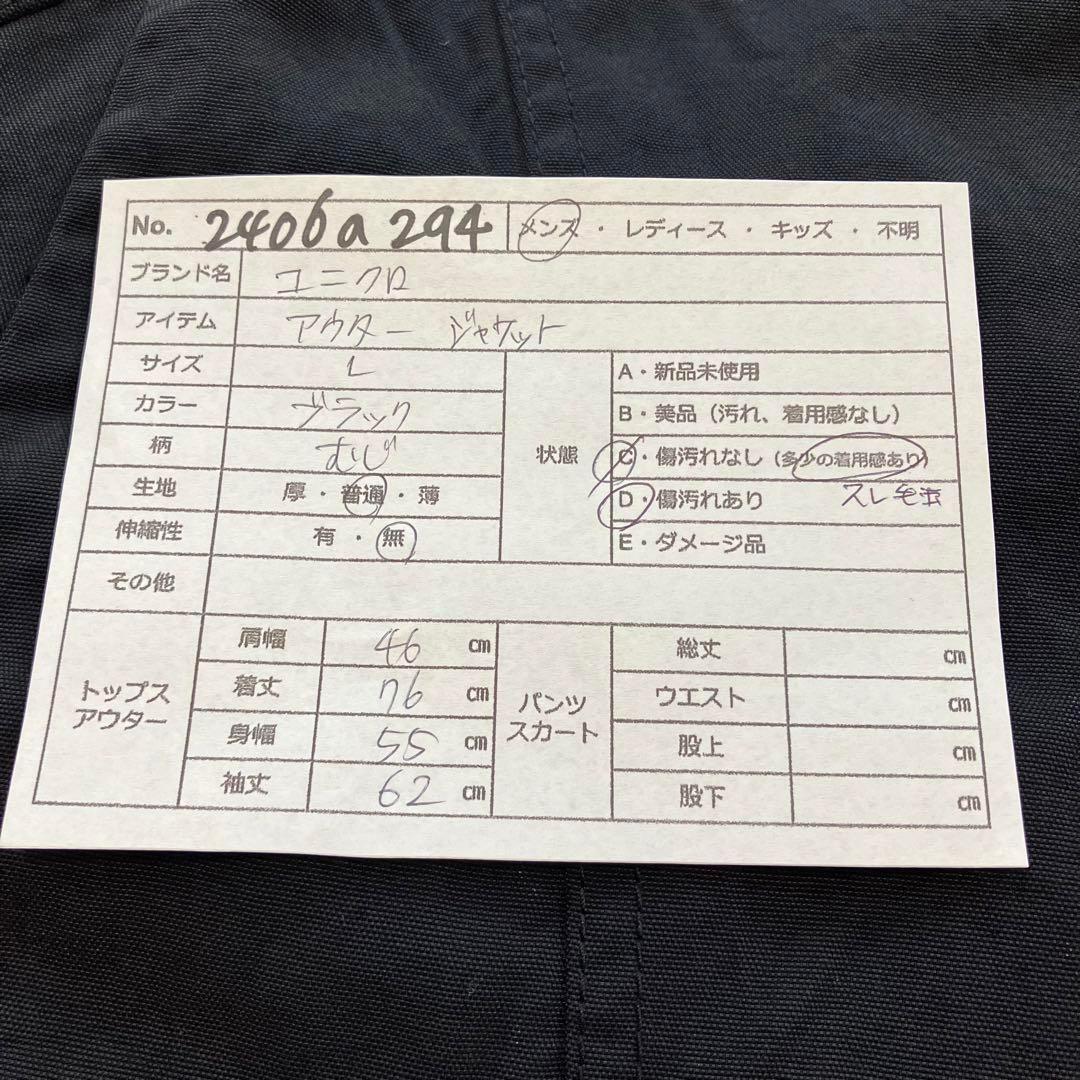 No. 2406a294 メンズ・レディース・キッズ・不明
ブランド名 ユニクロ
アイテム アウター ジャケット
サイズ L
カラー ブラック
柄 むじ
生地 厚・普通・薄
伸縮性 有・無
状態
A・新品未使用
B・美品（汚れ、着用感なし）
C・傷汚れなし（多少の着用感あり）
D・傷汚れあり スレ毛玉
E・ダメージ品
その他
トップス
アウター
肩幅 46 cm
着丈 76 cm
身幅 55 cm
袖丈 62 cm
パンツ
スカート
総丈 cm
ウエスト cm
股上 cm
股下 cm